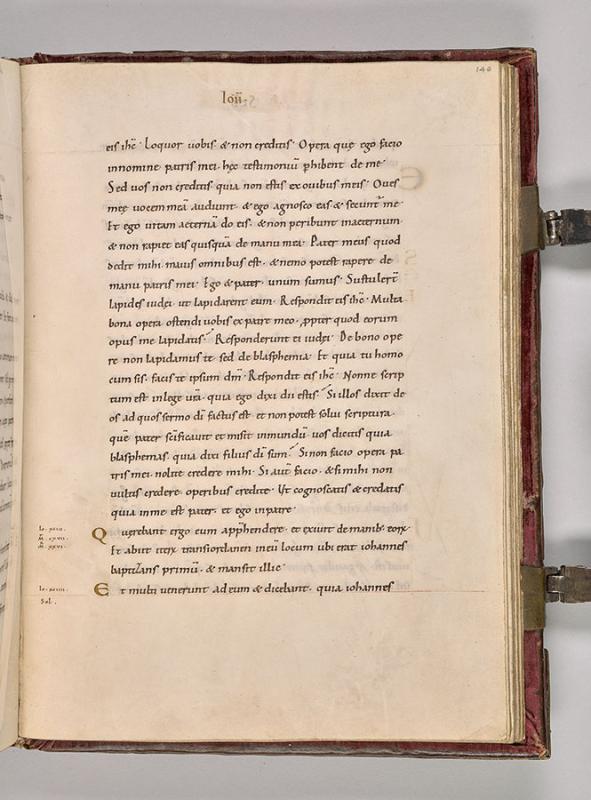 146
Ioh̄.
eis ih̄c · Loquor uobis · & non creditis · Opera quę ego facio
innomine patris mei · hęc testimoniū phibent de me ·
Sed uos non creditis quia non estis ex ouibus meis · Oues
męę uocem meā audiunt · & ego agnosco eas & secunt me ·
Et ego uitam aeternā do eis · & non peribunt inaeternum ·
& non rapiet eas quisquā de manu mea · Pater meus quod
dedit mihi · maius omnibus est · & nemo potest rapere de
manu patris mei · Ego & pater · unum sumus · Sustulerт̄
lapides iudęi · ut lapidarent eum · Respondit eis ih̄c · Multa
bona opera ostendi uobis ex patre meo · ppter quod eorum
opus me lapidatis · Responderunt ei iudęi · De bono ope
re non lapidamus te sed de blasphemia · Et quia tu homo
cum sis · facis te ipsum dm̄ · Respondit eis ih̄c · Nonne scrip
tum est inlege urā · quia ego dixi dii estis · Si illos dixit de
os ad quos sermo dī factus est · et non potest solui scriptura ·
quē pater sc̄ificauit et misit inmundū · uos dicitis quia
blasphemas · quia dixi filius dī sum · Si non facio opera pa
tris mei · nolite credere mihi · Si aut̄ facio · & si mihi non
uultis credere · operibus credite · Ut cognoscatis & credatis
quia inme est pater · et ego inpatre ·
Quęrebant ergo eum app̄hendere · et exiuit de manib; eorȝ ·
Et abiit iterȝ transiordanen ineū locum ubi erat iohannes
baptizans primū · & mansit illic ·
Et multi uenerunt ad eum & dicebant · quia iohannes
Sol ·